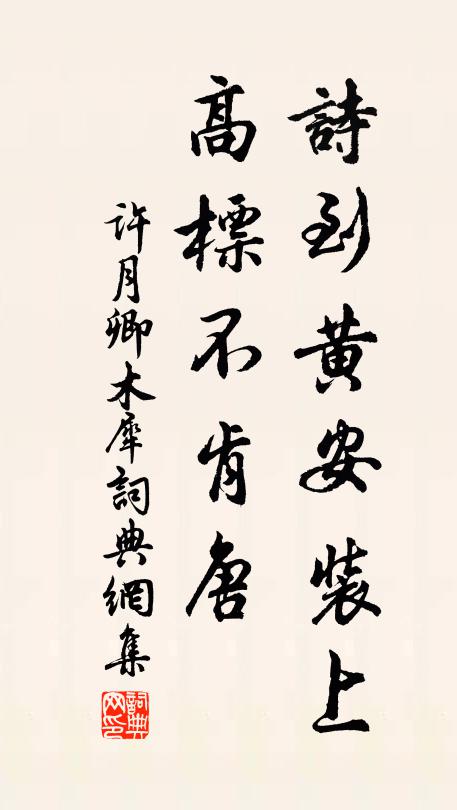 詩到黄安裝上
高標不肯唐
許月卿木犀詞典網集
詞典網印